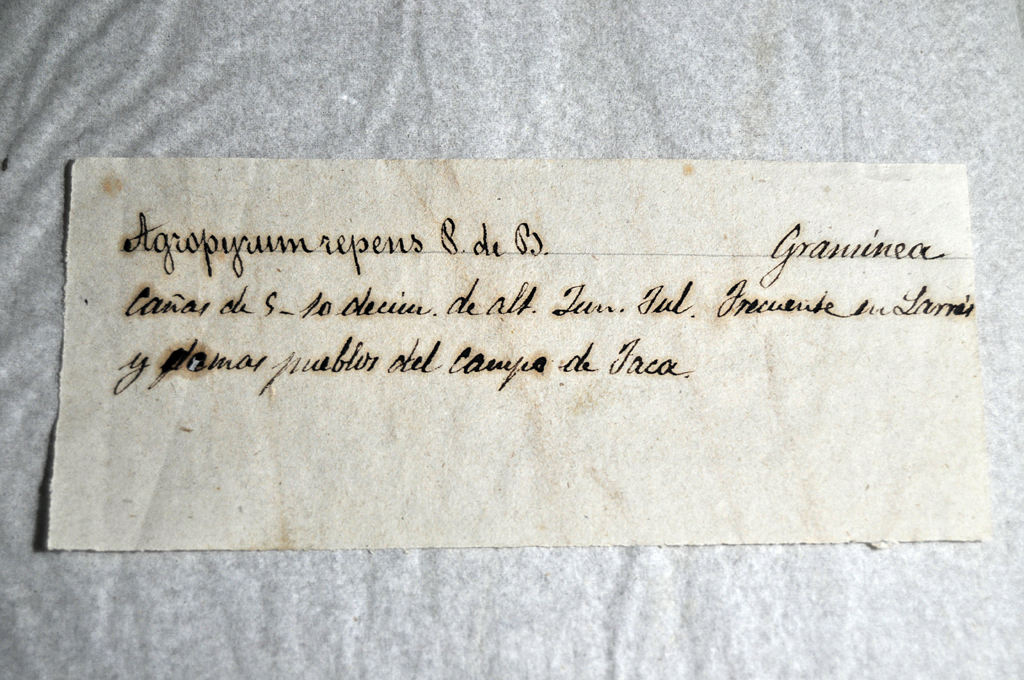 Agropyrum repens P. de B. Gramínea
Cañas de 5-10 decim. de alt. Jun. Jul. Frecuente en Larrés
y demas pueblos del campo de Jaca.